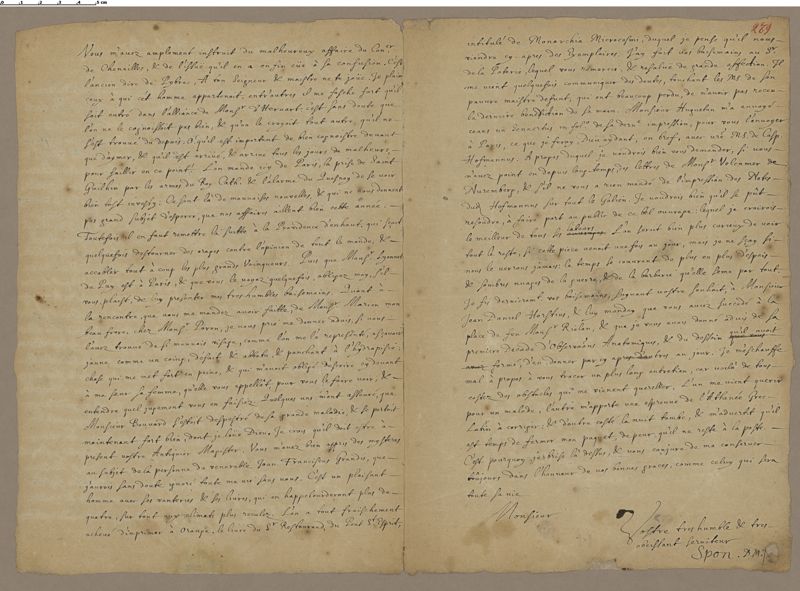 Vous m'avez amplement instruit du malheureux affaire du Con.er
de Chenailles, & de l'issuë qu'il a en fin euë à sa confusion. C'est
l'ancien dire de Pybrac, A ton Seigneur & maistre ne te jouë. Je plain
ceux a qui cet homme appartenoit, entr'autres il me fasche fort qu'il
soit entré dans l'alliance de Mons.r d'Hervart. C'est sans doute que
l'on ne le cognoissoit pas bien, & qu'on le croyoit tout autre, qu'il ne
s'est trouvé du depuis. O qu'il est important de bien cognoistre devant
que d'aymer, & qu'il est arrivé, & arrive tous les jours de malheurs,
pour faillir en ce point! L'on mande icy de Paris, la prise de Saint
Guilhin par les armes du Roy Cath. & l'alarme du Quesnoy de se voir
bien tost investy. Ce sont là de mauvaises nouvelles, & qui ne nous donnent
pas grand subjet d'esperer, que nos affaires aillent bien cette année.
Toutefois il en faut remettre le succez à la Providence d'enhaut, qui sçait
quelquefois destourner des orages contre l'opinion de tout le monde, &
accabler tout à coup les plus grands Vainqueurs. Puis que Mons.r
du Puy est à Paris, & que vous le voyez quelquefois, obligez moy, s'il
vous plaist, de luy presenter mes tres humbles baisemains. Quant à
la rencontre, que vous me mandez avoir faitte, de Mons.r Marion mon
beau frere, chez Mons.r je vous prie me donner advis, si vous
l'avez trouvé de si mauvais visage, comme l'on me l'a representé, asçavoir
jaune comme un coing, defait & abbatu & panchant à l'hydropisie:
chose qui me met fort en peine, & qui m'avoit obligé d'escrire cy devant
à ma sœur sa femme, qu'elle vous appellât, pour vous le faire voir, &
entendre quel jugement vous en faisiez. Quelques uns m'ont asseuré, que
Monsieur Bouvard s'estoit despestré de sa grande maladie, & se portoit
maintenant fort bien dont je louë Dieu. Je crois qu'il doit estre à
present vostre Antiquior Magister. Vous m'avez bien appris des mysteres
au subjet de la personne du venerable Jean Franciscus Grandis, que
j'aurois sans doute ignoré toute ma vie sans vous. C'est un plaisant
homme avec ses vanteries & ses livres, qui en happelourderont plus de
quatre, sur tout aux climats plus reculez. L'on a tout fraischement
achevé d'imprimer à Orange, le livre du S.r Restaurand, du Pont S.t Esprit,
279
intitulé de Monarchia Microcosmi, duquel je pense qu'il nous
viendra cy-apres des Exemplaires. J'ay fait les baisemains au S.r
de la Poterie, lequel vous remercie, & resaluë de grande affection. Il
me vient quelquefois communiquer des doutes, touchant les MS. de son
pauvre maistre defunt, qui ont beaucoup perdu, de n'avoir pas receu
la derniere benediction de sa main. Monsieur Huguetan m'a envoyé
ceans un Sennertus in fol.o de sa der.re impression, pour vous l'envoyer
à Paris, ce que je feray, Dieu aydant, en bref, avec vos MS. de Casp.
Hofmannus. A propos duquel je voudrois bien vous demander, si vous
n'avez point eu depuis long temps des lettres de Mons.r Volcamer de
Nuremberg, & s'il ne vous a rien mandé de l'impression des Notes
dud. Hofmannus sur tout le Galien. Je voudrois bien qu'il se pût
resoudre, à faire part au public de ce bel ouvrage: lequel je croirois
le meilleur de tous ses labeurs. L'on seroit bien plus curieux de voir
tout le reste, si cette piece venoit une fois au jour, mais je ne sçay si
nous le verrons jamais: le temps se couvrant de plus en plus d'espais
& sombres nuages de la guerre, & de la barbarie qu'elle seme par tout.
Je fis dernierement vos baisemains, suyvant vostre souhait, à Monsieur
Jean Daniel Horstius, & luy manday que vous aviez succedé à la
place de feu Mons.r Riolan, & que je vous avois donné advis de sa
premiere decade d'Observaõns Anatomiques, & du dessein
formé, d'en donner par cy apres au jour. Je m'eschauffe
mal à propos à vous tracer un plus long entretien, car voilà de tous
costez des obstacles qui me vienent quereller. L'un me vient querir
pour un malade, l'autre m'apporte une espreuve de l'Athenée Grec-
Latin à corriger; & d'autre costé la nuit tombe, & m'advertit qu'il
est temps de fermer mon paquet, de peur qu'il ne reste à la poste.
C'est pourquoy j'acheve là dessus, & vous conjure de me conserver
tousjours dans l'honneur de vos bonnes graces, comme celuy qui sera
toute sa vie
Monsieur
Vostre tres humble & tres
obeissant serviteur
Spon. D.M.